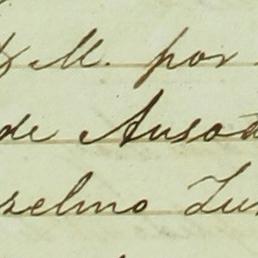 M. por
de Ausot
zelmo Zu